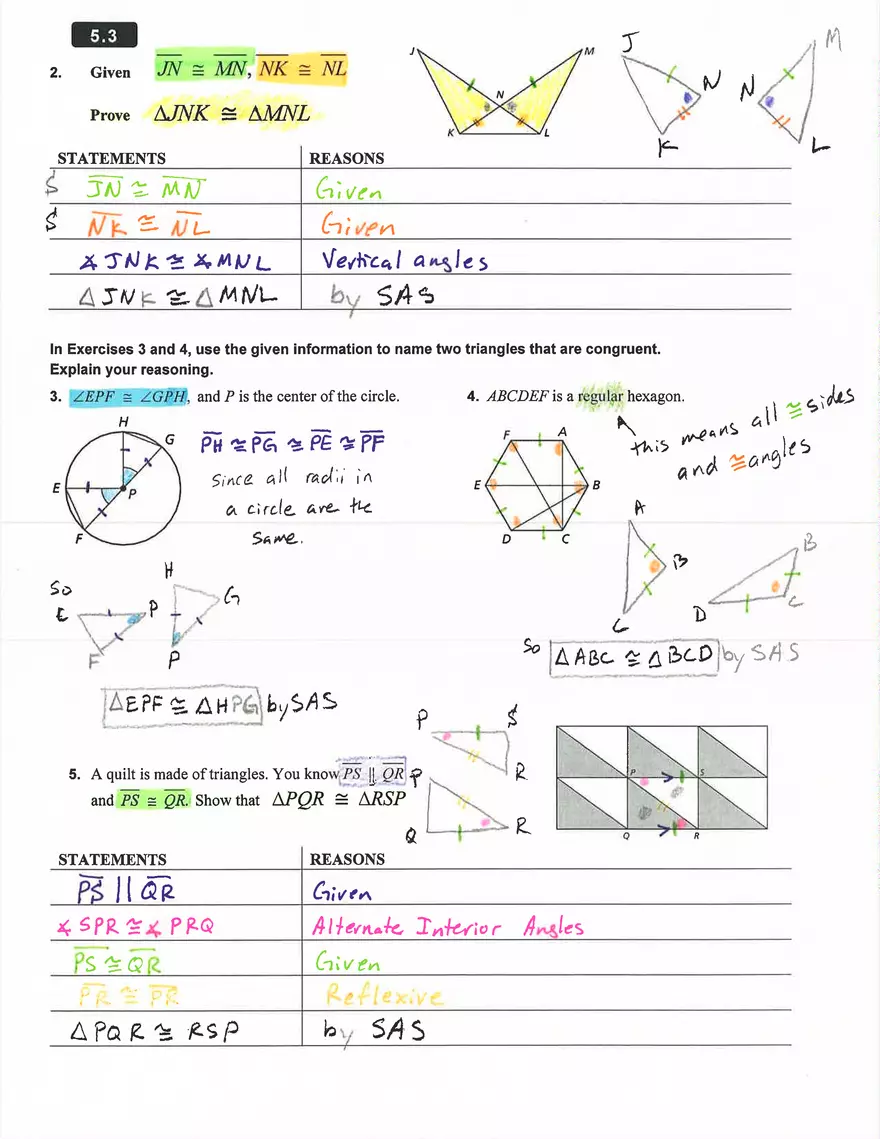 5.3
2. Given JN ≅ MN, NK ≅ NL
Prove △JNK ≅ △MNL
J M N K L
J N K
M N L
STATEMENTS REASONS
S JN ≅ MN Given
S NK ≅ NL Given
∡ JNK ≅ ∡ MNL Vertical angles
△ JNK ≅ △ MNL by SAS
In Exercises 3 and 4, use the given information to name two triangles that are congruent.
Explain your reasoning.
3. ∠EPF ≅ ∠GPH, and P is the center of the circle.
H G E P F
PH ≅ PG ≅ PE ≅ PF
Since all radii in
a circle are the
same.
So
E P F
H G P
△EPF ≅ △HPG by SAS
4. ABCDEF is a regular hexagon.
this means all ≅ sides
and ≅ angles
F A E B D C
A B C
B D C
So △ABC ≅ △BCD by SAS
5. A quilt is made of triangles. You know PS || QR
and PS ≅ QR. Show that △PQR ≅ △RSP
P S R
P Q R
P S Q R
STATEMENTS REASONS
PS || QR Given
∡ SPR ≅ ∡ PRQ Alternate Interior Angles
PS ≅ QR Given
PR ≅ PR Reflexive
△ PQR ≅ RSP by SAS